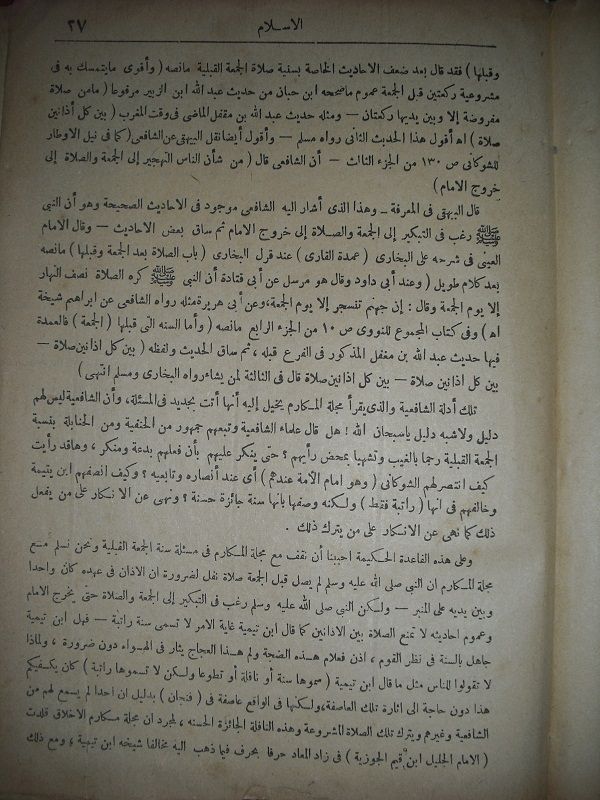 الاسلام ٢٧
وقبلها ) فقد قال بعد ضعف الاحاديث الخاصة بسنية صلاة الجمعة القبلية مانصه ( وأقوى مايتمسك به فى
مشروعية ركعتين قبل الجمعة عموم ماصححه ابن حبان من حديث عبد الله ابن الزبير مرفوعا ( مامن صلاة
مفروضة إلا وبين يديها ركعتان — ومثله حديث عبد الله بن مغفل الماضى فى وقت المغرب ( بين كل أذانين
صلاة ) اه أقول هذا الحديث الثانى رواه مسلم — وأقول أيضا نقل البيهقى عن الشافعى ( كما فى نيل الاوطار
للشوكانى ص ١٣٠ من الجزء الثالث — أن الشافعى قال ( من شأن الناس التهجير إلى الجمعة والصلاة إلى
خروج الامام )
قال البيهقى فى المعرفة — وهذا الذى أشار اليه الشافعى موجود فى الاحاديث الصحيحة وهو أن النبى
ﷺ رغب فى التبكير إلى الجمعة والصلاة إلى خروج الامام ثم ساق بعض الاحاديث — وقال الامام
العينى فى شرحه على البخارى ( عمدة القارى ) عند قول البخارى ( باب الصلاة بعد الجمعة وقبلها ) مانصه
بعد كلام طويل ( وعند أبى داود وقال هو مرسل عن أبى قتادة أن النبى ﷺ كره الصلاة نصف النهار
إلا يوم الجمعة وقال : إن جهنم تسجر إلا يوم الجمعة، وعن أبى هريرة مثله رواه الشافعى عن ابراهيم شيخة
اه ) وفى كتاب المجموع للنووى ص ١٠ من الجزء الرابع مانصه ( وأما السنه التى قبلها ( الجمعة ) فالعمدة
فيها حديث عبد الله بن مغفل المذكور فى الفرع قبله ، ثم ساق الحديث ولفظه ( بين كل اذانين صلاة —
بين كل اذانين صلاة — بين كل اذانين صلاة قال فى الثالثة لمن يشاء رواه البخارى ومسلم انتهى )
تلك أدلة الشافعية والذى يقرأ مجلة المكارم يخيل إليه أنها أتت بجديد فى المسئلة، وأن الشافعية ليس لهم
دليل ولا شبه دليل ياسبحان الله ! هل قال علماء الشافعية وتبعهم جمهور من الحنفية ومن الحنابلة بنسبة
الجمعة القبلية رحما بالغيب وتشهيا بمحض رأيهم ؟ حتى ينكر عليهم بأن فعلهم بدعة ومنكر ، وهاقد رأيت
كيف انتصر لهم الشوكانى ( وهو امام الأمة عندهم ) أى عند أنصاره وتابعيه ؟ وكيف انصفهم ابن يتيمة
وخالفهم فى انها ( راتبة فقط ) ولكنه وصفها بانها سنة جائزة حسنة ؟ ونهى عن الانكار على من يفعل
ذلك كما نهى عن الانكار على من يترك ذلك .
وعلى هذه القاعدة الحكيمة احببنا أن نقف مع مجلة المكارم فى مسئلة سنة الجمعة القبلية ونحن نسلم مع
مجلة المكارم ان النبى صلى الله عليه وسلم لم يصل قبل الجمعة صلاة نفل لضرورة ان الاذان فى عهده كان واحدا
وبين يديه على المنبر — ولكن النبى صلى الله عليه وسلم رغب فى التبكير إلى الجمعة والصلاة حتى يخرج الامام
وعموم احاديثه لا تمنع الصلاة بين الاذانين كما قال ابن تيمية غاية الامر لا تسمى سنة راتبة — فهل ابن تيمية
جاهل بالسنة فى نظر القوم ، اذن فعلام هذه الضجة ولم هذا العجاج يثار فى الهواء دون ضرورة ، ولماذا
لا تقولوا للناس مثل ما قال ابن تيمية ( سموها سنة أو نافلة أو تطوعا ولكن لا تسموها راتبة ) كان يكفيكم
هذا دون حاجة الى اثارة تلك العاصفة، ولكنها فى الواقع عاصفة فى ( فنجان ) بدليل ان احدا لم يسمع لهم من
الشافعية وغيرهم ويترك تلك الصلاة المشروعة وهذه النافلة الجائزة الحسنه ، لمجرد ان مجلة مكارم الاخلاق قلدت
( الامام الجليل ابن قيم الجوزية ) فى زاد المعاد حرفا بحرف فيما ذهب اليه مخالفا شيخه ابن تيمية ، ومع ذلك